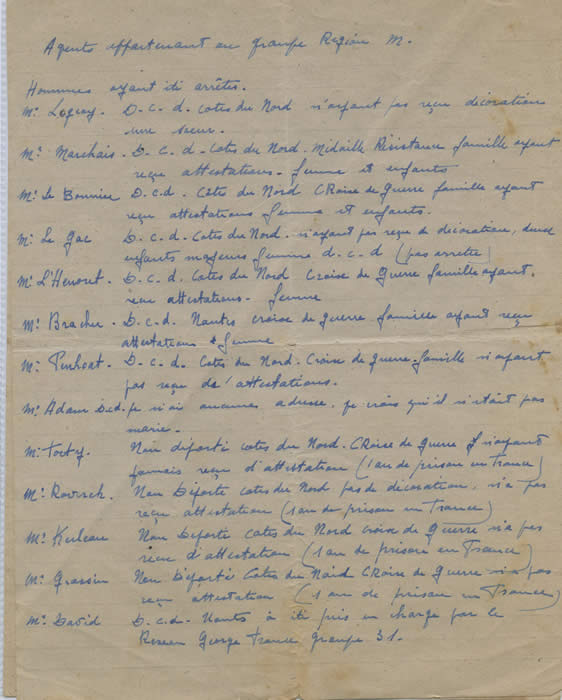 Agents appartenant au groupe Région M.
Hommes ayant été arrêtés.
Mr Loguay. D.c.d. Cotes du Nord n'ayant pas reçu décoration
une sœur.
Mr Marchais. D.c.d. Cotes du Nord. Médaille Résistance famille ayant
reçu attestations. femme et enfants
Mr Le Bonniec D.c.d. Côtes du Nord CRoise de Guerre famille ayant
reçu attestations femme et enfants.
Mr Le Gac D.c.d. Cotes du Nord. n'ayant pas reçu de décoration, deux
enfants majeurs femme d.c.d (pas arretée)
Mr L'Hevoret. D.c.d. Cotes du Nord Croise de Guerre famille ayant
reçu attestations. femme
Mr Bracher. D.c.d. Nantes croise de guerre famille ayant reçu
attestations femme
Mr Penhoat. D.c.d. Cotes du Nord. Croise de guerre. famille n'ayant
pas reçu de'attestations.
Mr Adam D.cd. je n'ai aucunes adresse, je crois qu'il n'était pas
marié.
Mr Torty. Non déporté cotes du Nord. CRoise de guerre n'ayant
jamais reçu d'attestation (1 an de prison en France)
Mr Rovrsch. Non Déporté cotes du Nord pas de décoration, n'a pas
reçu attestation (1 an de prison en France)
Mr Kerleau Non Déporté cotes du Nord croise de Guerre n'a pas
reçu d'attestation (1 an de prison en France)
Mr Grassin Non Déporté Cotes du Naord CRoise de Guerre n'a pas
reçu attestation (1 an de prison en France)
Mr David D.c.d. Nantes à été pris en charge par le
Reseau George France groupe 31.